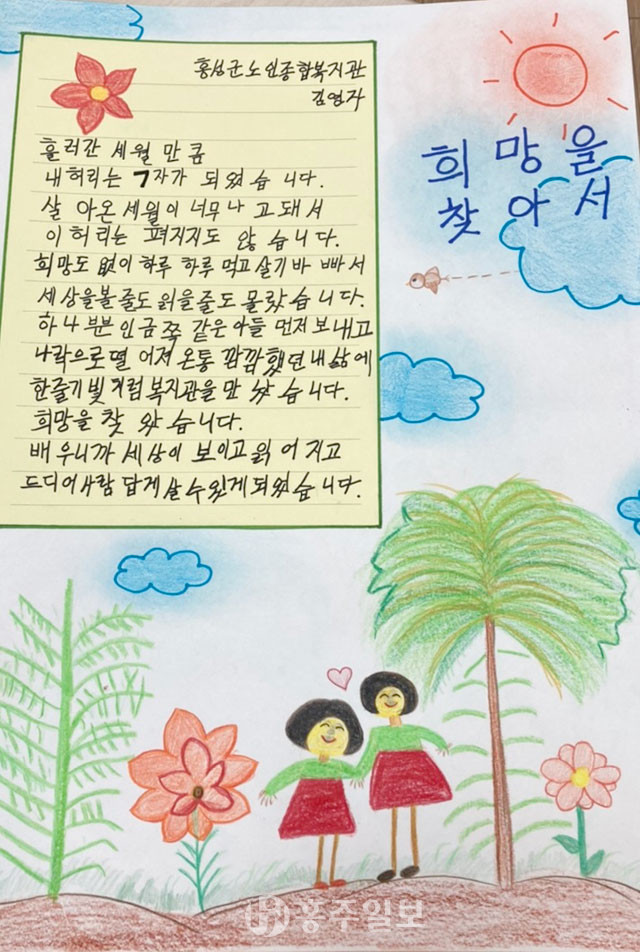 희망을
찾아서
홍성군노인종합복지관
김영자
흘러간 세월 만큼
내허리는 7자가 되었습니다.
살아온세월이 너무나 고돼서
이허리는 펴지지도 않습니다.
희망도 없이 하루 하루 먹고살기바빠서
세상을볼줄도 읽을줄도 몰랐습니다.
하나부분인금쪽 같은아들 먼저보내고
나락으로떨어져 온통 깜깜했던내삶에
한줄기빛처럼복지관을만났습니다.
희망을 찾았습니다.
배우니까 세상이 보이고읽어지고
드디어사람답게살수있게되었습니다.
홍주일보